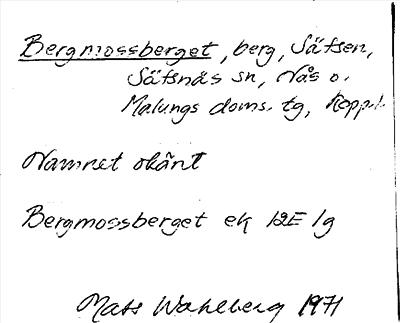 Bergmossberget, berg, Säfsen,
Säfsnäs sn, Nås o.
Malungs doms. tg, Kopp.l.
Namnet okänt
Bergmossberget ek 12E 1g
Mats Wahlberg 1971